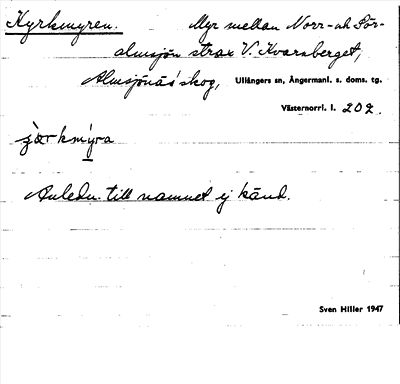 Kyrkmyren. Myr mellan Norr- och Sör-
almsjön strax V. Kvarnberget,
Almsjönäs' skog, Ullångers sn, Ångermanl. s. doms. tg.
Västernorrl. l. 202.
Anledn. till namnet ej känd.
Sven Hiller 1947